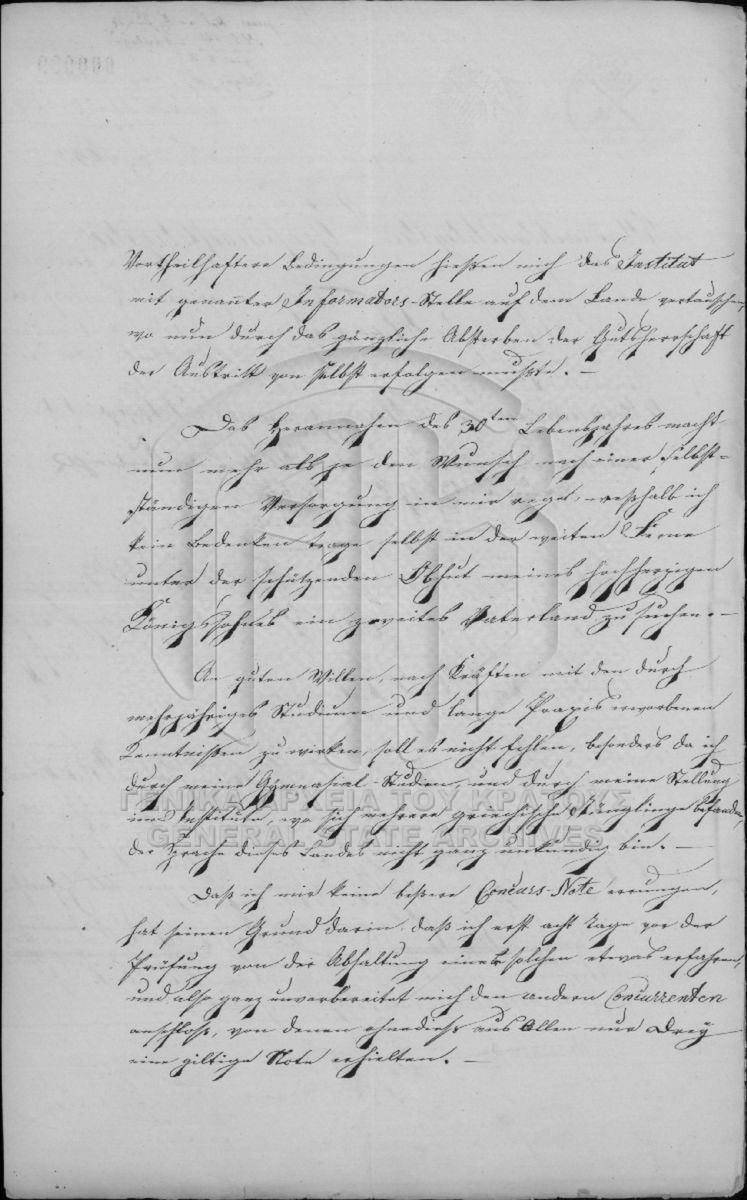 Vortheilhaftere Bedingungen hießen mich das Institut
mit genannter Informators-Stelle auf dem Lande vertauschen,
wo nun durch das gänzliche Absterben der Gutsherrschaft
der Austritt von selbst erfolgen mußte. —
Das Herannahen des 30ten Lebensjahres macht
nun mehr als je den Wunsch nach einer selbst-
ständigen Versorgung in mir rege, weßhalb ich
kein Bedenken trage selbst in der weiten Ferne
unter der schützenden Obhut meines hochherzigen
Königssohnes ein zweites Vaterland zu suchen. —
An guten Willen, nach Kräften mit den durch
mehrjähriges Studium und lange Praxis erworbenen
Kenntnißen zu wirken, soll es nicht fehlen, besonders da ich
durch meine Gymnasial-Studien, und durch meine Stellung
im Institute, wo sich mehrere griechische Jünglinge befanden,
der Sprache dieses Landes nicht ganz unkundig bin. —
Daß ich mir keine beßere Concurs-Note errungen,
hat seinen Grund darin, daß ich erst acht Tage vor der
Prüfung von der Abhaltung eines solchen etwas erfahren,
und also ganz unvorbereitet mich den andern Concurrenten
anschloß, von denen ohnedieß aus Allen nur Drey
eine giltige Note erhielten. —
ΓΕΝΙΚΑ ΑΡΧΕΙΑ ΤΟΥ ΚΡΑΤΟΥΣ
GENERAL STATE ARCHIVES